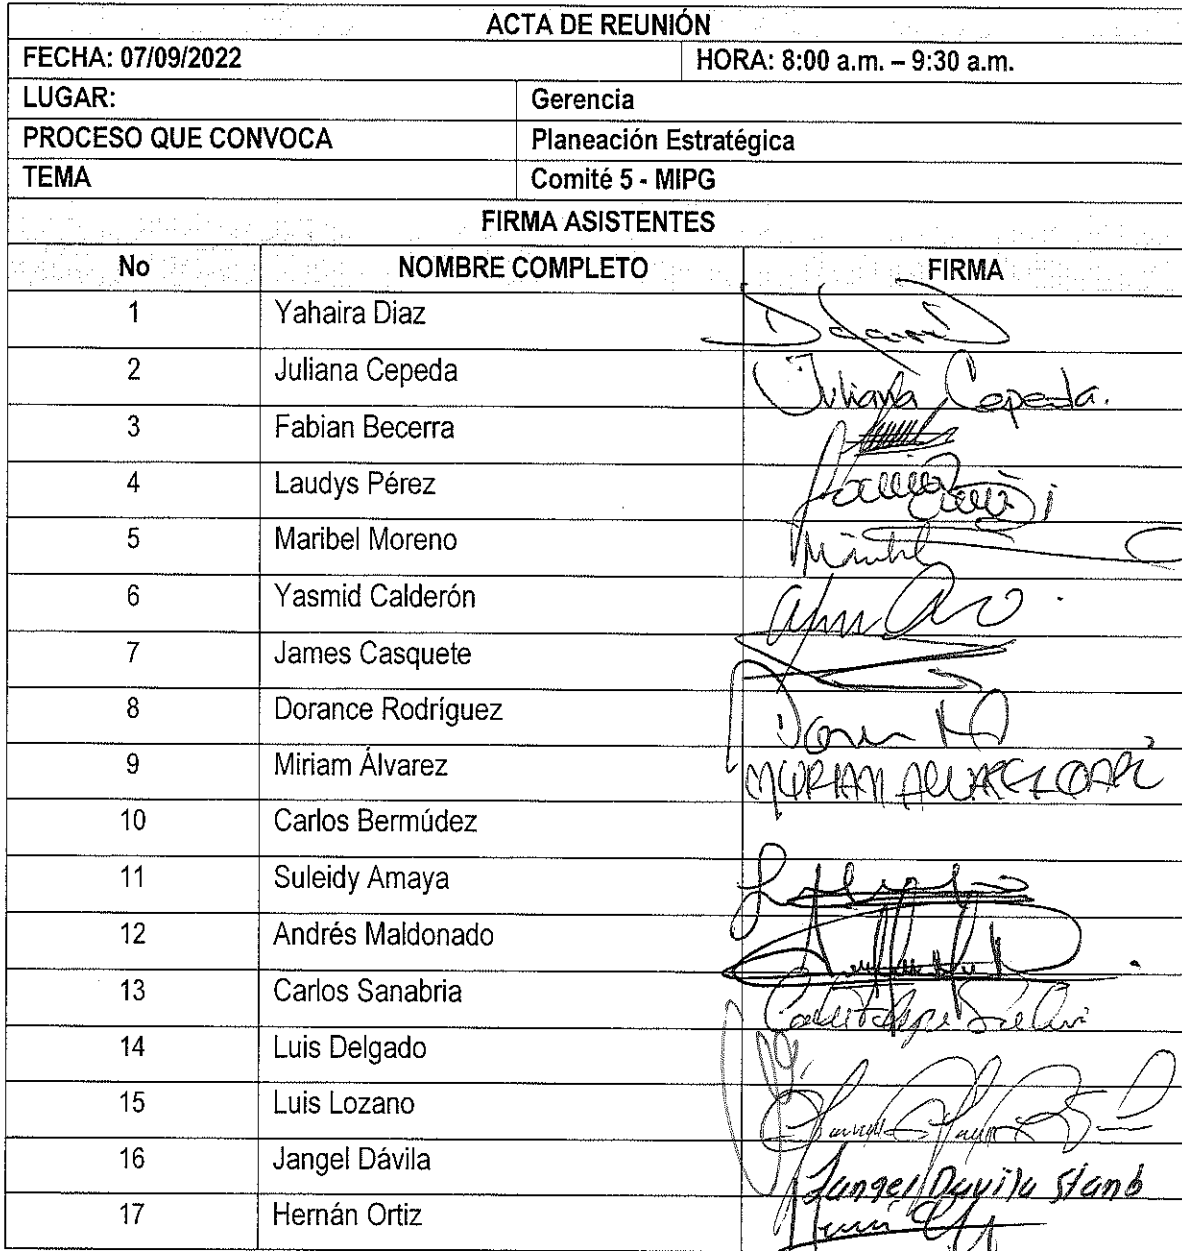 ACTA DE REUNIÓN
FECHA: 07/09/2022 HORA: 8:00 a.m. – 9:30 a.m.
LUGAR: Gerencia
PROCESO QUE CONVOCA Planeación Estratégica
TEMA Comité 5 - MIPG
FIRMA ASISTENTES
No NOMBRE COMPLETO FIRMA
1 Yahaira Diaz
2 Juliana Cepeda Juliana Cepeda.
3 Fabian Becerra
4 Laudys Pérez
5 Maribel Moreno
6 Yasmid Calderón
7 James Casquete
8 Dorance Rodríguez
9 Miriam Álvarez
10 Carlos Bermúdez
11 Suleidy Amaya
12 Andrés Maldonado
13 Carlos Sanabria
14 Luis Delgado
15 Luis Lozano
16 Jangel Dávila Jangel Davila
17 Hernán Ortiz